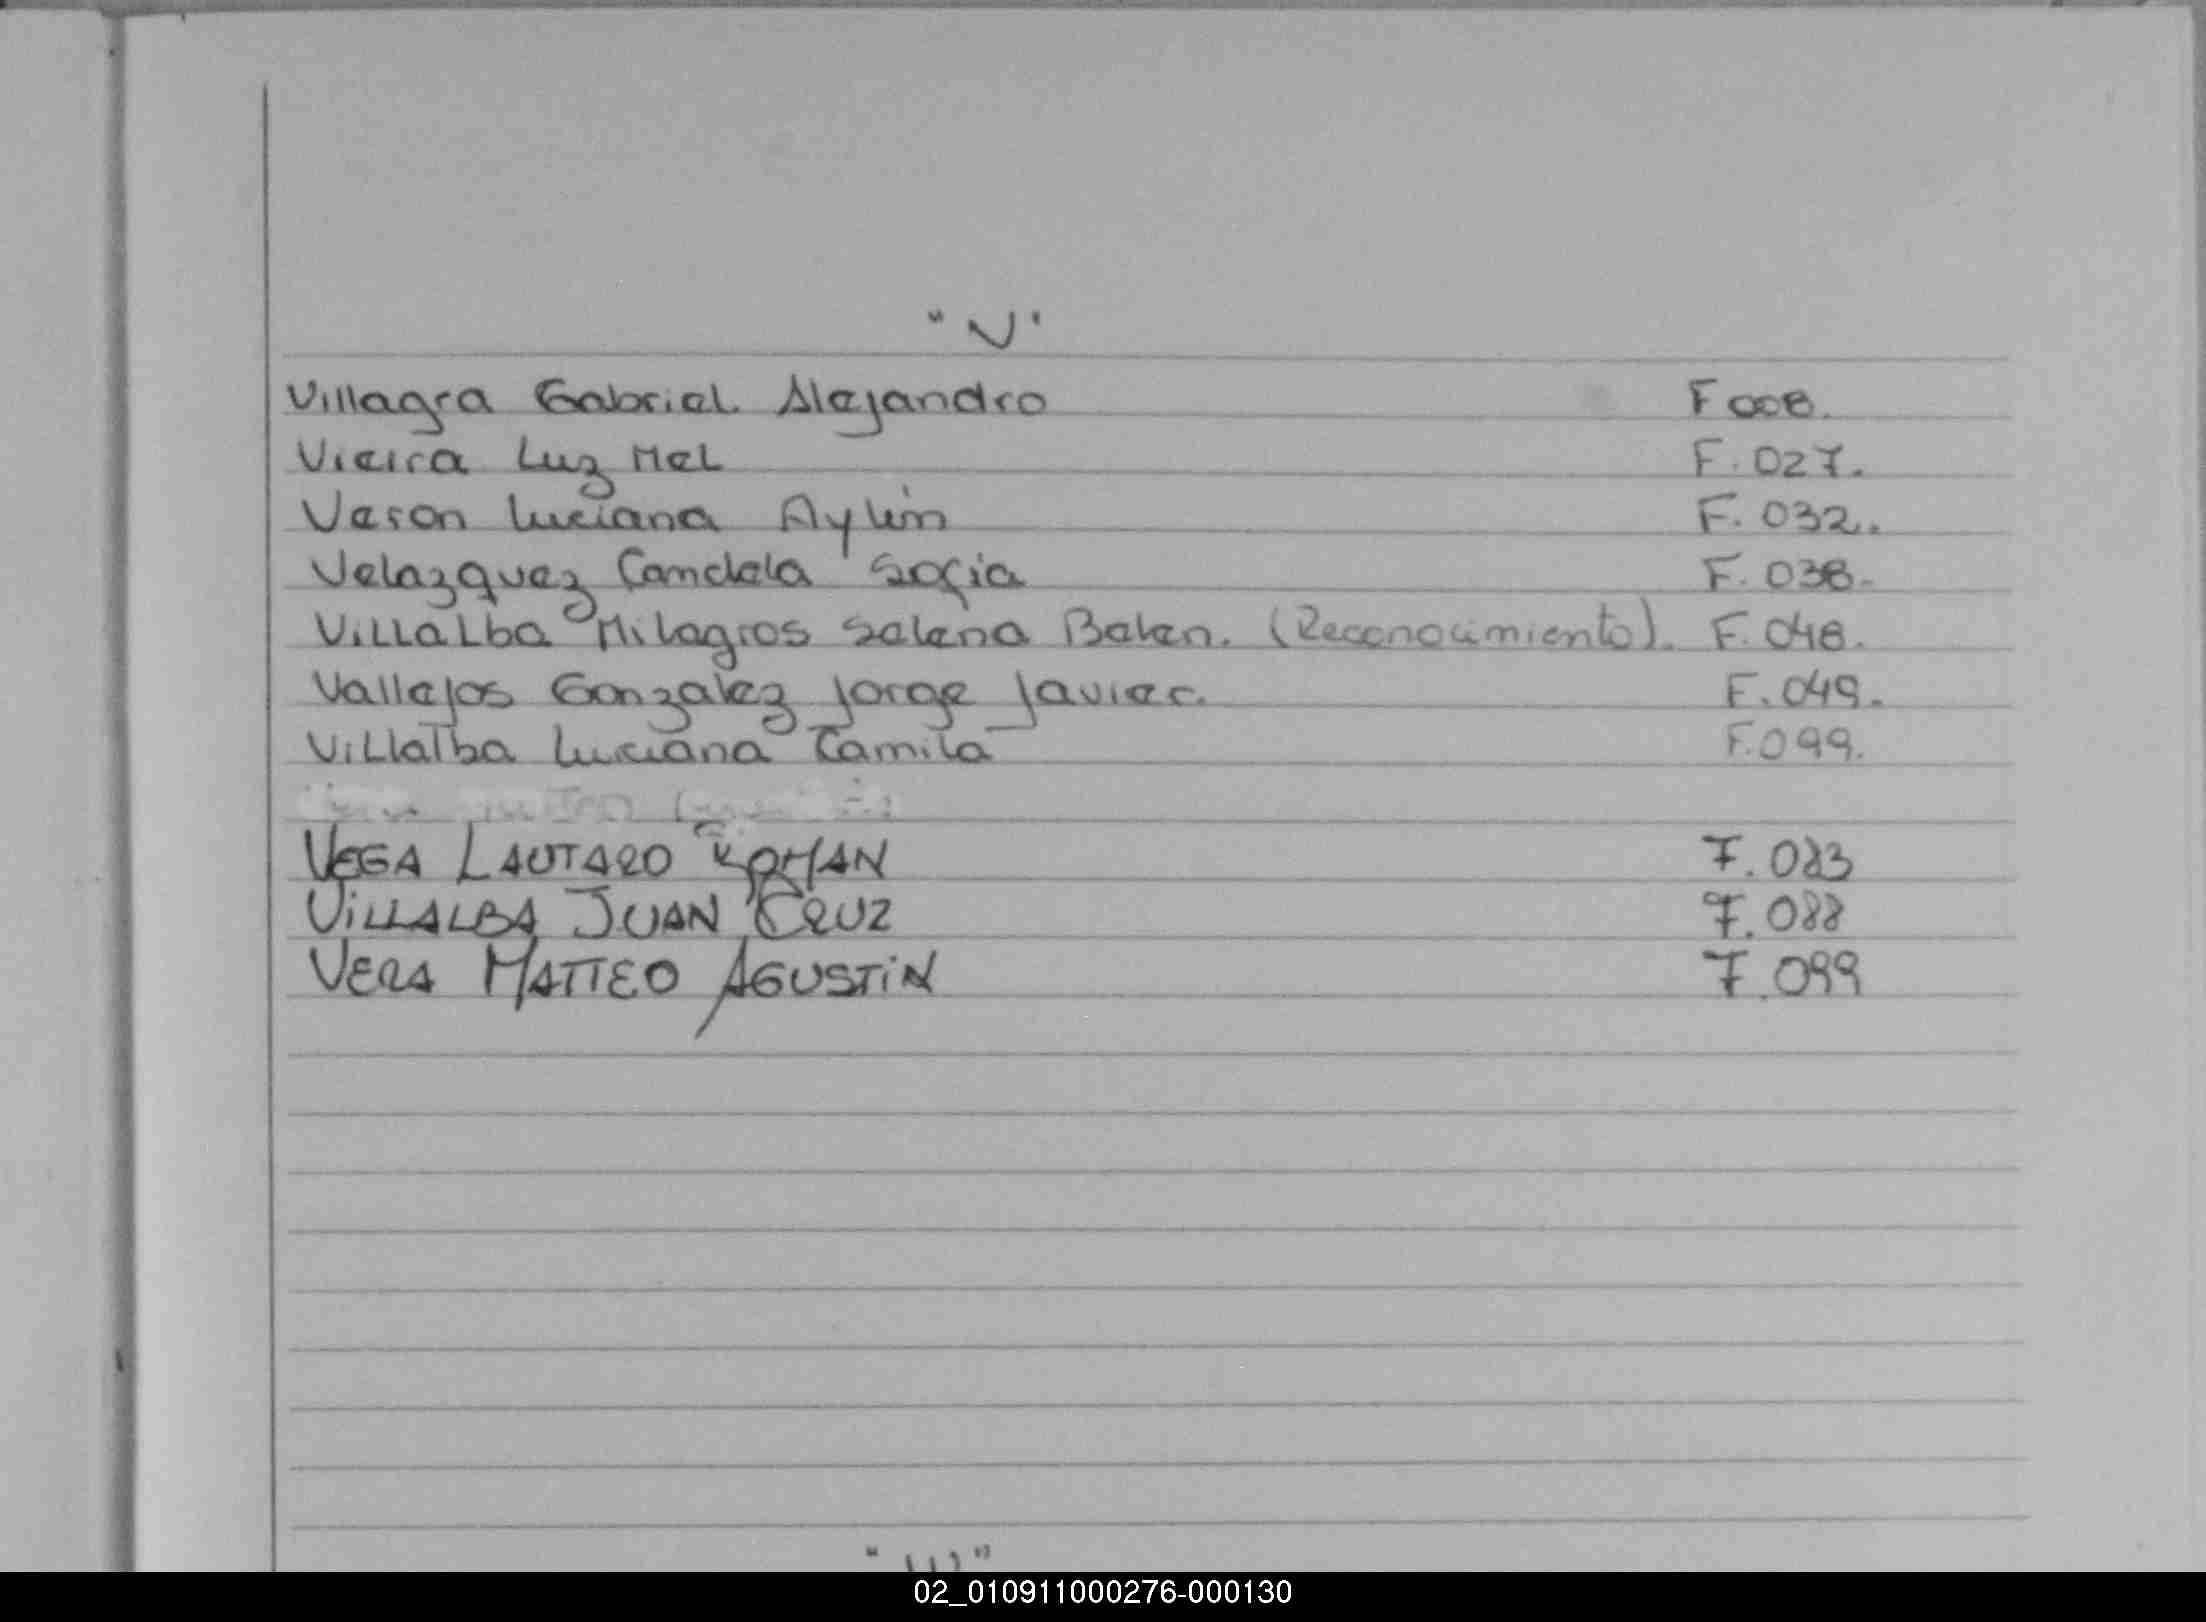 "V"
Villagra Gabriel Alejandro F 008.
Vieira Luz Mel F. 027.
Veron Luciana Aylin F. 032.
Velazquez Candela Sofia F. 038.
Villalba Milagros Selena Belen. (Reconocimiento). F. 048.
Vallejos Gonzalez Jorge Javier. F. 049.
Villalba Luciana Camila F. 099.
VEGA LAUTARO ROMAN F. 083
VILLALBA JUAN CRUZ F. 088
VERA MATTEO AGUSTIN F. 099
02_010911000276-000130